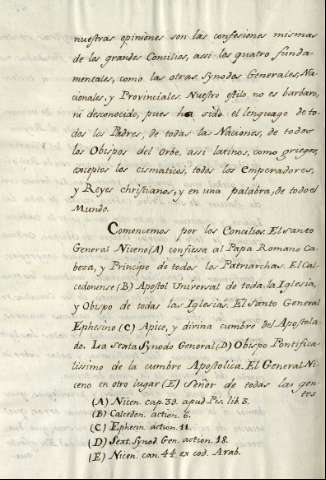 nuestras opiniones son las confesiones mismas
de los grandes Concilios, assi los quatro funda-
mentales, como las otras Synodos Generales, Na-
cionales, y Provinciales. Nuestro estilo no es barbaro,
ni desconocido, pues ha sido el lenguage de to-
dos los Padres, de todas las Naciones, de todos
los Obispos del Orbe, assi latinos, como griegos,
exceptos los cismaticos, todos los Emperadores,
y Reyes christianos, y en una palabra, de todo el
Mundo.
Comencemos por los Concilios. El santo
General Niceno (A) confiessa al Papa Romano Ca-
beza, y Principe de todos los Patriarchas. El Cal-
cedonense (B) Apostol Universal de toda la Iglesia,
y Obispo de todas las Iglesias. El Santo General
Ephesino (C) Apice, y divina cumbre del Apostola-
do. La sexta Synodo General (D) Obispo Pontifica-
lissimo de la cumbre Apostolica. El General Ni-
ceno en otro lugar (E) Señor de todas las gen-
tes
(A) Nicen. cap. 39. apud Pis. lib. 3.
(B) Calceden. action. 6.
(C) Ephesin. action. 11.
(D) Sext. Synod. Gen. action. 18.
(E) Nicen. can. 44. ex cod. Arab.